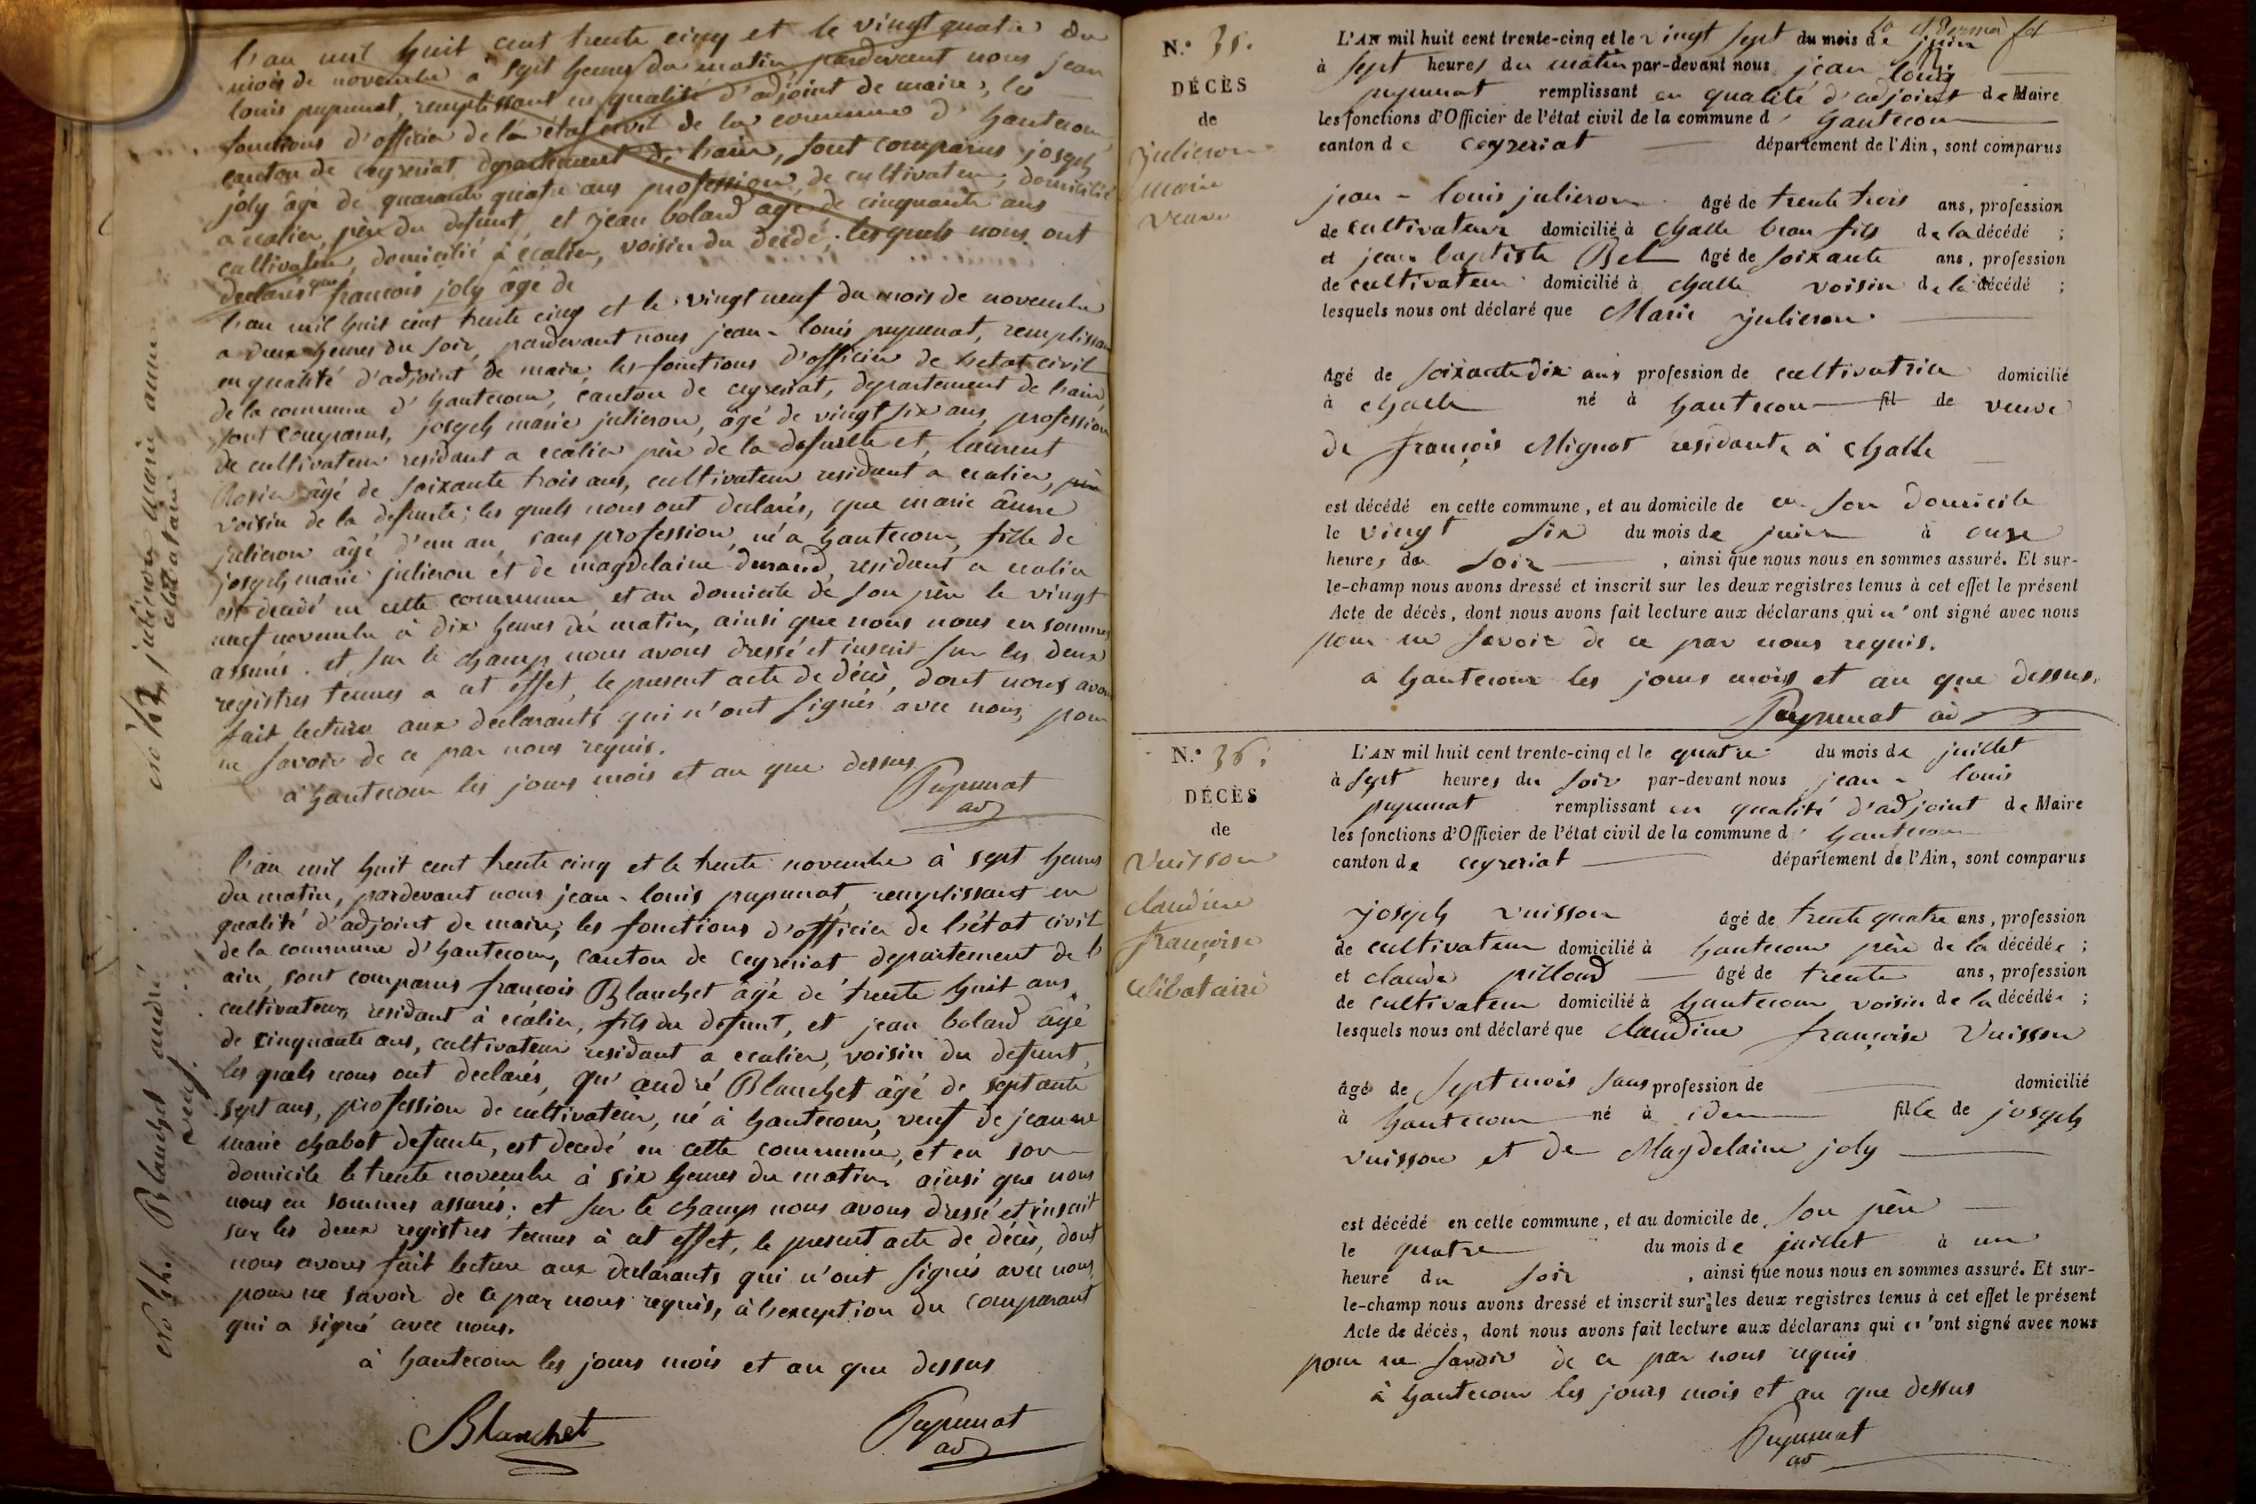 L'an mil huit cent trente cinq et le vingt quatre du
mois de novembre à sept heures du matin pardevant nous jean
louis pupunat, remplissant en qualité d'adjoint de maire, les
fonctions d'officier de la état civil de la commune d'hautecour
canton de ceyzeriat, departement de l'ain, sont comparus joseph
joly âgé de quarante quatre ans profession de cultivateur, domicilié
a écalier, père du defunt, et jean bolard âgé de cinquante ans
cultivateur, domicilié à écalier, voisin du décédé, lesquels nous ont
declarés que francois joly âgé de
L'an mil huit cent trente cinq et le vingt neuf du mois de novembre
a deux heures du soir, pardevant nous jean-louis pupunat, remplissant
en qualité d'adjoint de maire, les fonctions d'officier de l'etat civil
de la commune d'hautecour, canton de ceyzeriat, departement de l'ain,
sont comparus, joseph marie julieron, âgé de vingt six ans, profession
de cultivateur residant a écalier père de la defunte et, laurent
Rosier âgé de soixante trois ans, cultivateur residant a écalier,
voisin de la defunte; les quels nous ont declarés, que marie anne
julieron âgé d'un an, sans profession, né a hautecour, fille de
joseph marie julieron et de magdelaine durand, residant a écalier
est decédé en cette commune et au domicile de son père le vingt
neuf novembre à dix heures du matin, ainsi que nous nous en sommes
assurés. et sur le champ nous avons dressé et inscrit sur les deux
registres tenues a cet effet, le present acte de décès, dont nous avons
fait lecture aux declarants qui n'ont signés avec nous, pour
ne savoir de ce par nous requis.
à hautecour les jours mois et an que dessus
Pupunat
ad
julieron marie anne
celibataire
L'an mil huit cent trente cinq et le trente novembre à sept heures
du matin, pardevant nous jean-louis pupunat, remplissant en
qualité d'adjoint de maire, les fonctions d'officier de l'état civil
de la commune d'hautecour, canton de ceyzeriat departement de l'
ain, sont comparus francois Blanchet âgé de trente huit ans
cultivateur, residant à écalier, fils du defunt, et jean bolard âgé
de cinquante ans, cultivateur residant a écalier, voisin du defunt,
les quels nous ont declarés, qu'andré Blanchet âgé de septante
sept ans, profession de cultivateur, né à hautecour, veuf de jeanne
marie chabot defunte, est decedé en cette commune, et en son
domicile le trente novembre à six heures du matin, ainsi que nous
nous en sommes assurés; et sur le champ nous avons dressé et inscrit
sur les deux registres tenues à cet effet, le present acte de décès, dont
nous avons fait lecture aux declarants qui n'ont signés avec nous,
pour ne savoir de ce par nous requis, à l'exception du comparant
qui a signé avec nous.
à hautecour les jours mois et an que dessus
Blanchet
Pupunat
ad
Blanchet andré
veuf.
N.° 35.
DÉCÈS
de
julieron
marie
veuve
L'AN mil huit cent trente-cinq et le vingt sept du mois de juin
à sept heures du matin par-devant nous jean louis
pupunat remplissant en qualité d'adjoint de Maire
les fonctions d'Officier de l'état civil de la commune d'hautecour
canton de ceyzeriat département de l'Ain, sont comparus
jean-louis julieron âgé de trente trois ans, profession
de cultivateur domicilié à challe beau fils de la décédé ;
et jean baptiste Bel âgé de soixante ans, profession
de cultivateur domicilié à challe voisin de la décédé ;
lesquels nous ont déclaré que Marie julieron.
âgé de soixante dix ans profession de cultivatrice domicilié
à challe né à hautecour fil de veuve
de françois Mignot residante à challe
est décédé en cette commune, et au domicile de en son domicile
le vingt six du mois de juin à onze
heures du soir, ainsi que nous nous en sommes assuré. Et sur-
le-champ nous avons dressé et inscrit sur les deux registres tenus à cet effet le présent
Acte de décès, dont nous avons fait lecture aux déclarans qui n'ont signé avec nous
pour ne savoir de ce par nous requis.
a hautecour les jours mois et an que dessus.
Pupunat ad
N.° 36.
DÉCÈS
de
Vuisson
claudine
françoise
celibataire
L'AN mil huit cent trente-cinq et le quatre du mois de juillet
à sept heures du soir par-devant nous jean-louis
pupunat remplissant en qualité d'adjoint de Maire
les fonctions d'Officier de l'état civil de la commune d'hautecour
canton de ceyzeriat département de l'Ain, sont comparus
joseph vuisson âgé de trente quatre ans, profession
de cultivateur domicilié à hautecour père de la décédée ;
et claude pilloud âgé de trente ans, profession
de cultivateur domicilié à hautecour voisin de la décédée ;
lesquels nous ont déclaré que claudine françoise Vuisson
âgé de sept mois sans profession de domicilié
à hautecour né à idem fille de joseph
vuisson et de Magdelaine joly
est décédé en cette commune, et au domicile de son père
le quatre du mois de juillet à une
heure du soir, ainsi que nous nous en sommes assuré. Et sur-
le-champ nous avons dressé et inscrit sur les deux registres tenus à cet effet le présent
Acte de décès, dont nous avons fait lecture aux déclarans qui n'ont signé avec nous
pour ne savoir de ce par nous requis
à hautecour les jours mois et an que dessus
Pupunat
ad